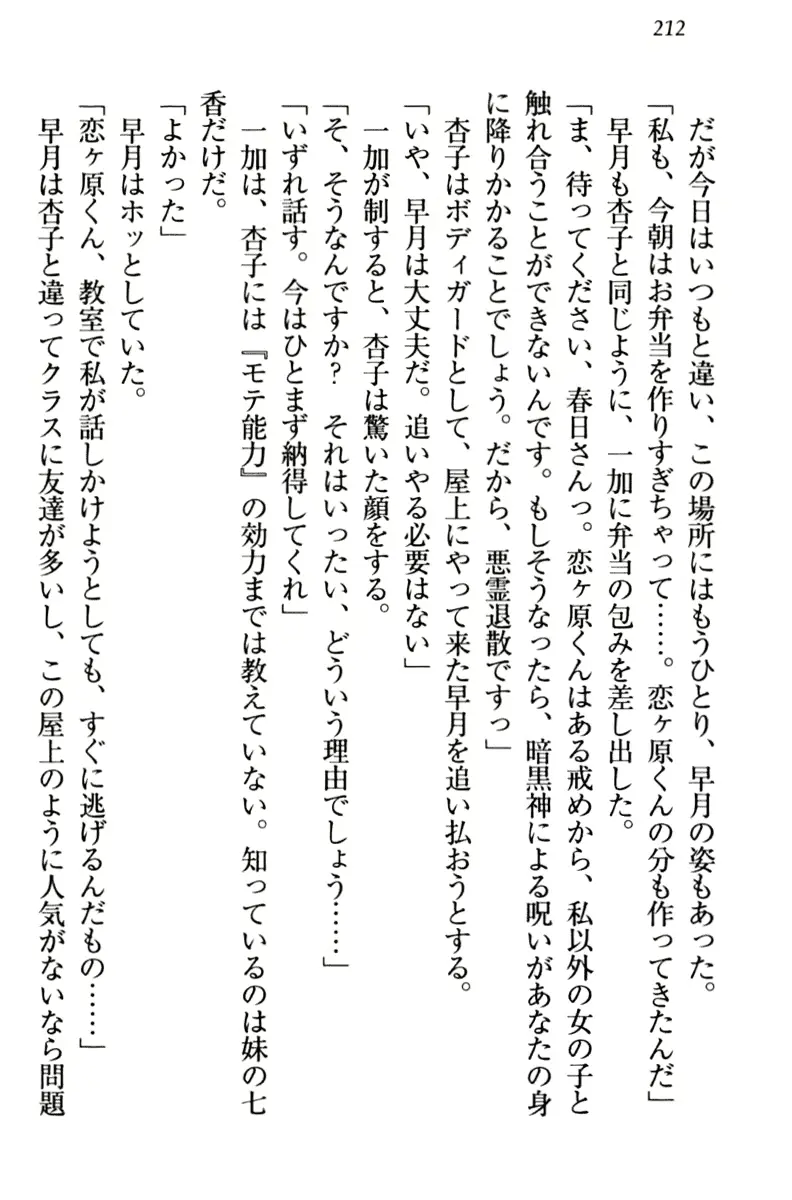 212
だが今日はいつもと違い、この場所にはもうひとり、早月の姿もあった。
「私も、今朝はお弁当を作りすぎちゃって……。恋ヶ原くんの分も作ってきたんだ」
早月も杏子と同じように、一加に弁当の包みを差し出した。
「ま、待ってください、春日さんっ。恋ヶ原くんはある戒めから、私以外の女の子と
触れ合うことができないんです。もしそうなったら、暗黒神による呪いがあなたの身
に降りかかることでしょう。だから、悪霊退散ですっ」
杏子はボディガードとして、屋上にやって来た早月を追い払おうとする。
「いや、早月は大丈夫だ。追いやる必要はない」
一加が制すると、杏子は驚いた顔をする。
「そ、そうなんですか?　それはいったい、どういう理由でしょう……」
「いずれ話す。今はひとまず納得してくれ」
一加は、杏子には『モテ能力』の効力までは教えていない。知っているのは妹の七
香だけだ。
「よかった」
早月はホッとしていた。
「恋ヶ原くん、教室で私が話しかけようとしても、すぐに逃げるんだもの……」
早月は杏子と違ってクラスに友達が多いし、この屋上のように人気がないなら問題